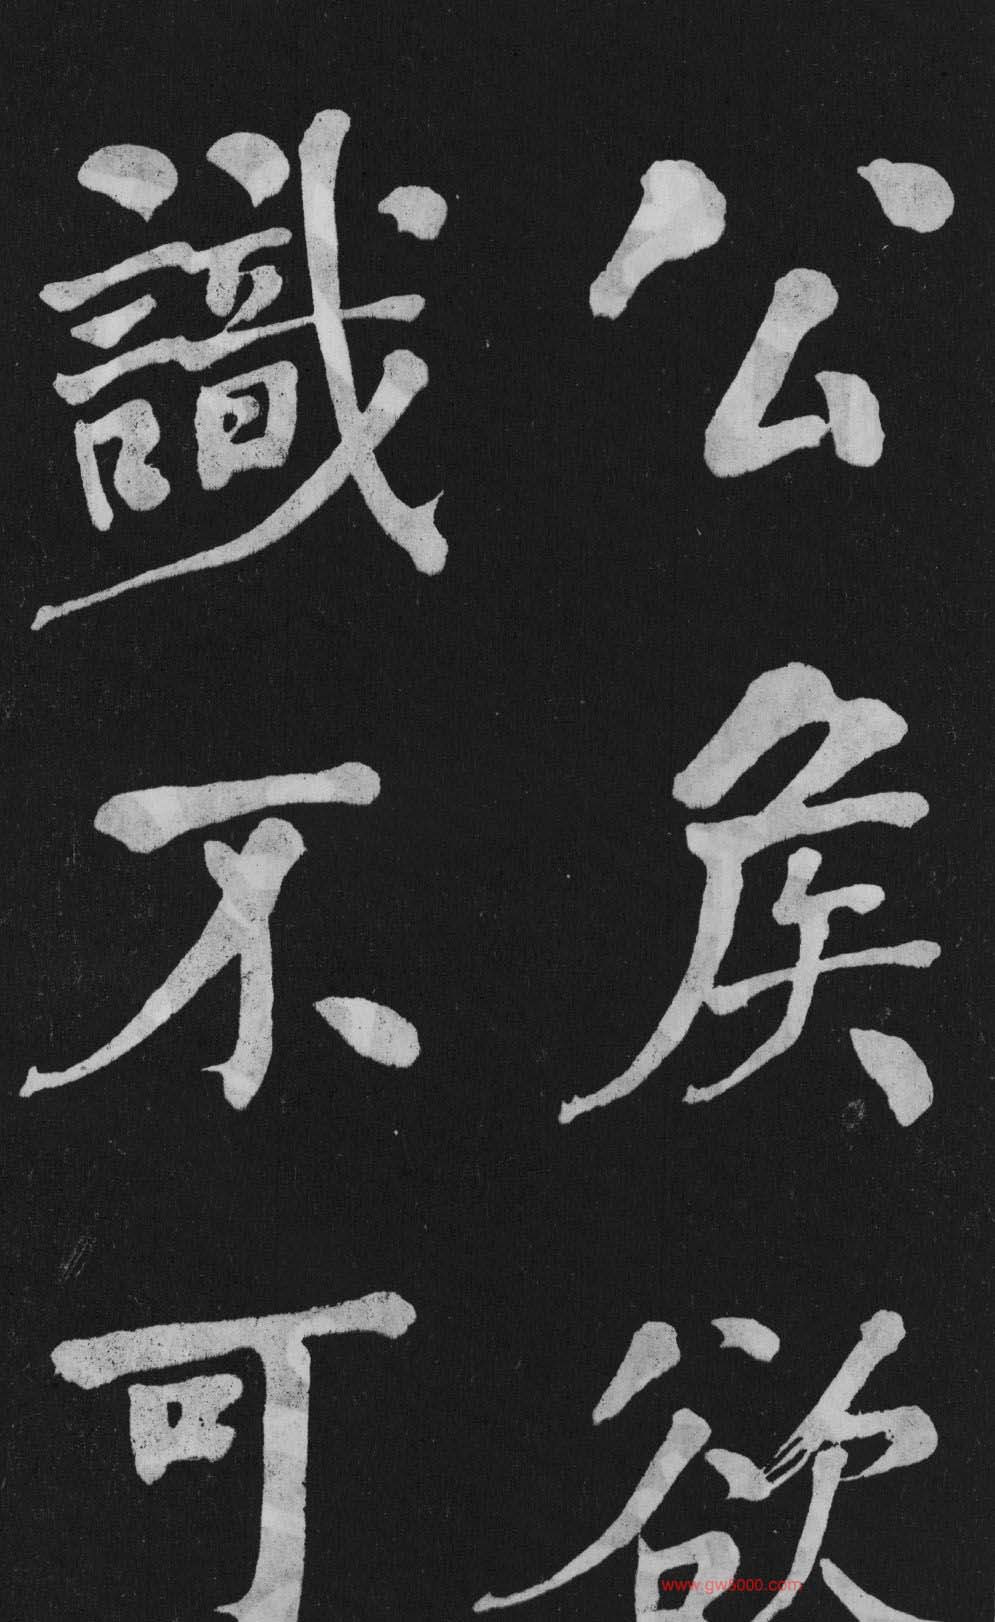 公矦欲
識不可
www.gw5000.com